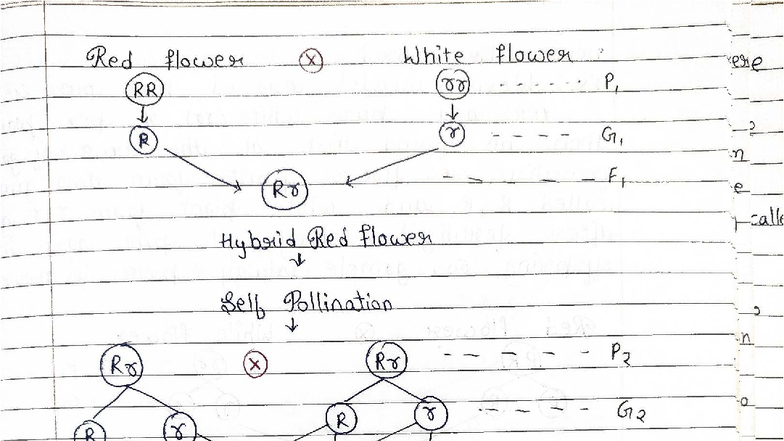 Red flower ⓧ White flower
RR rr P1
R r G1
Rr F1
Hybrid Red flower
Self Pollination
Rr ⓧ Rr P2
R r R r G2